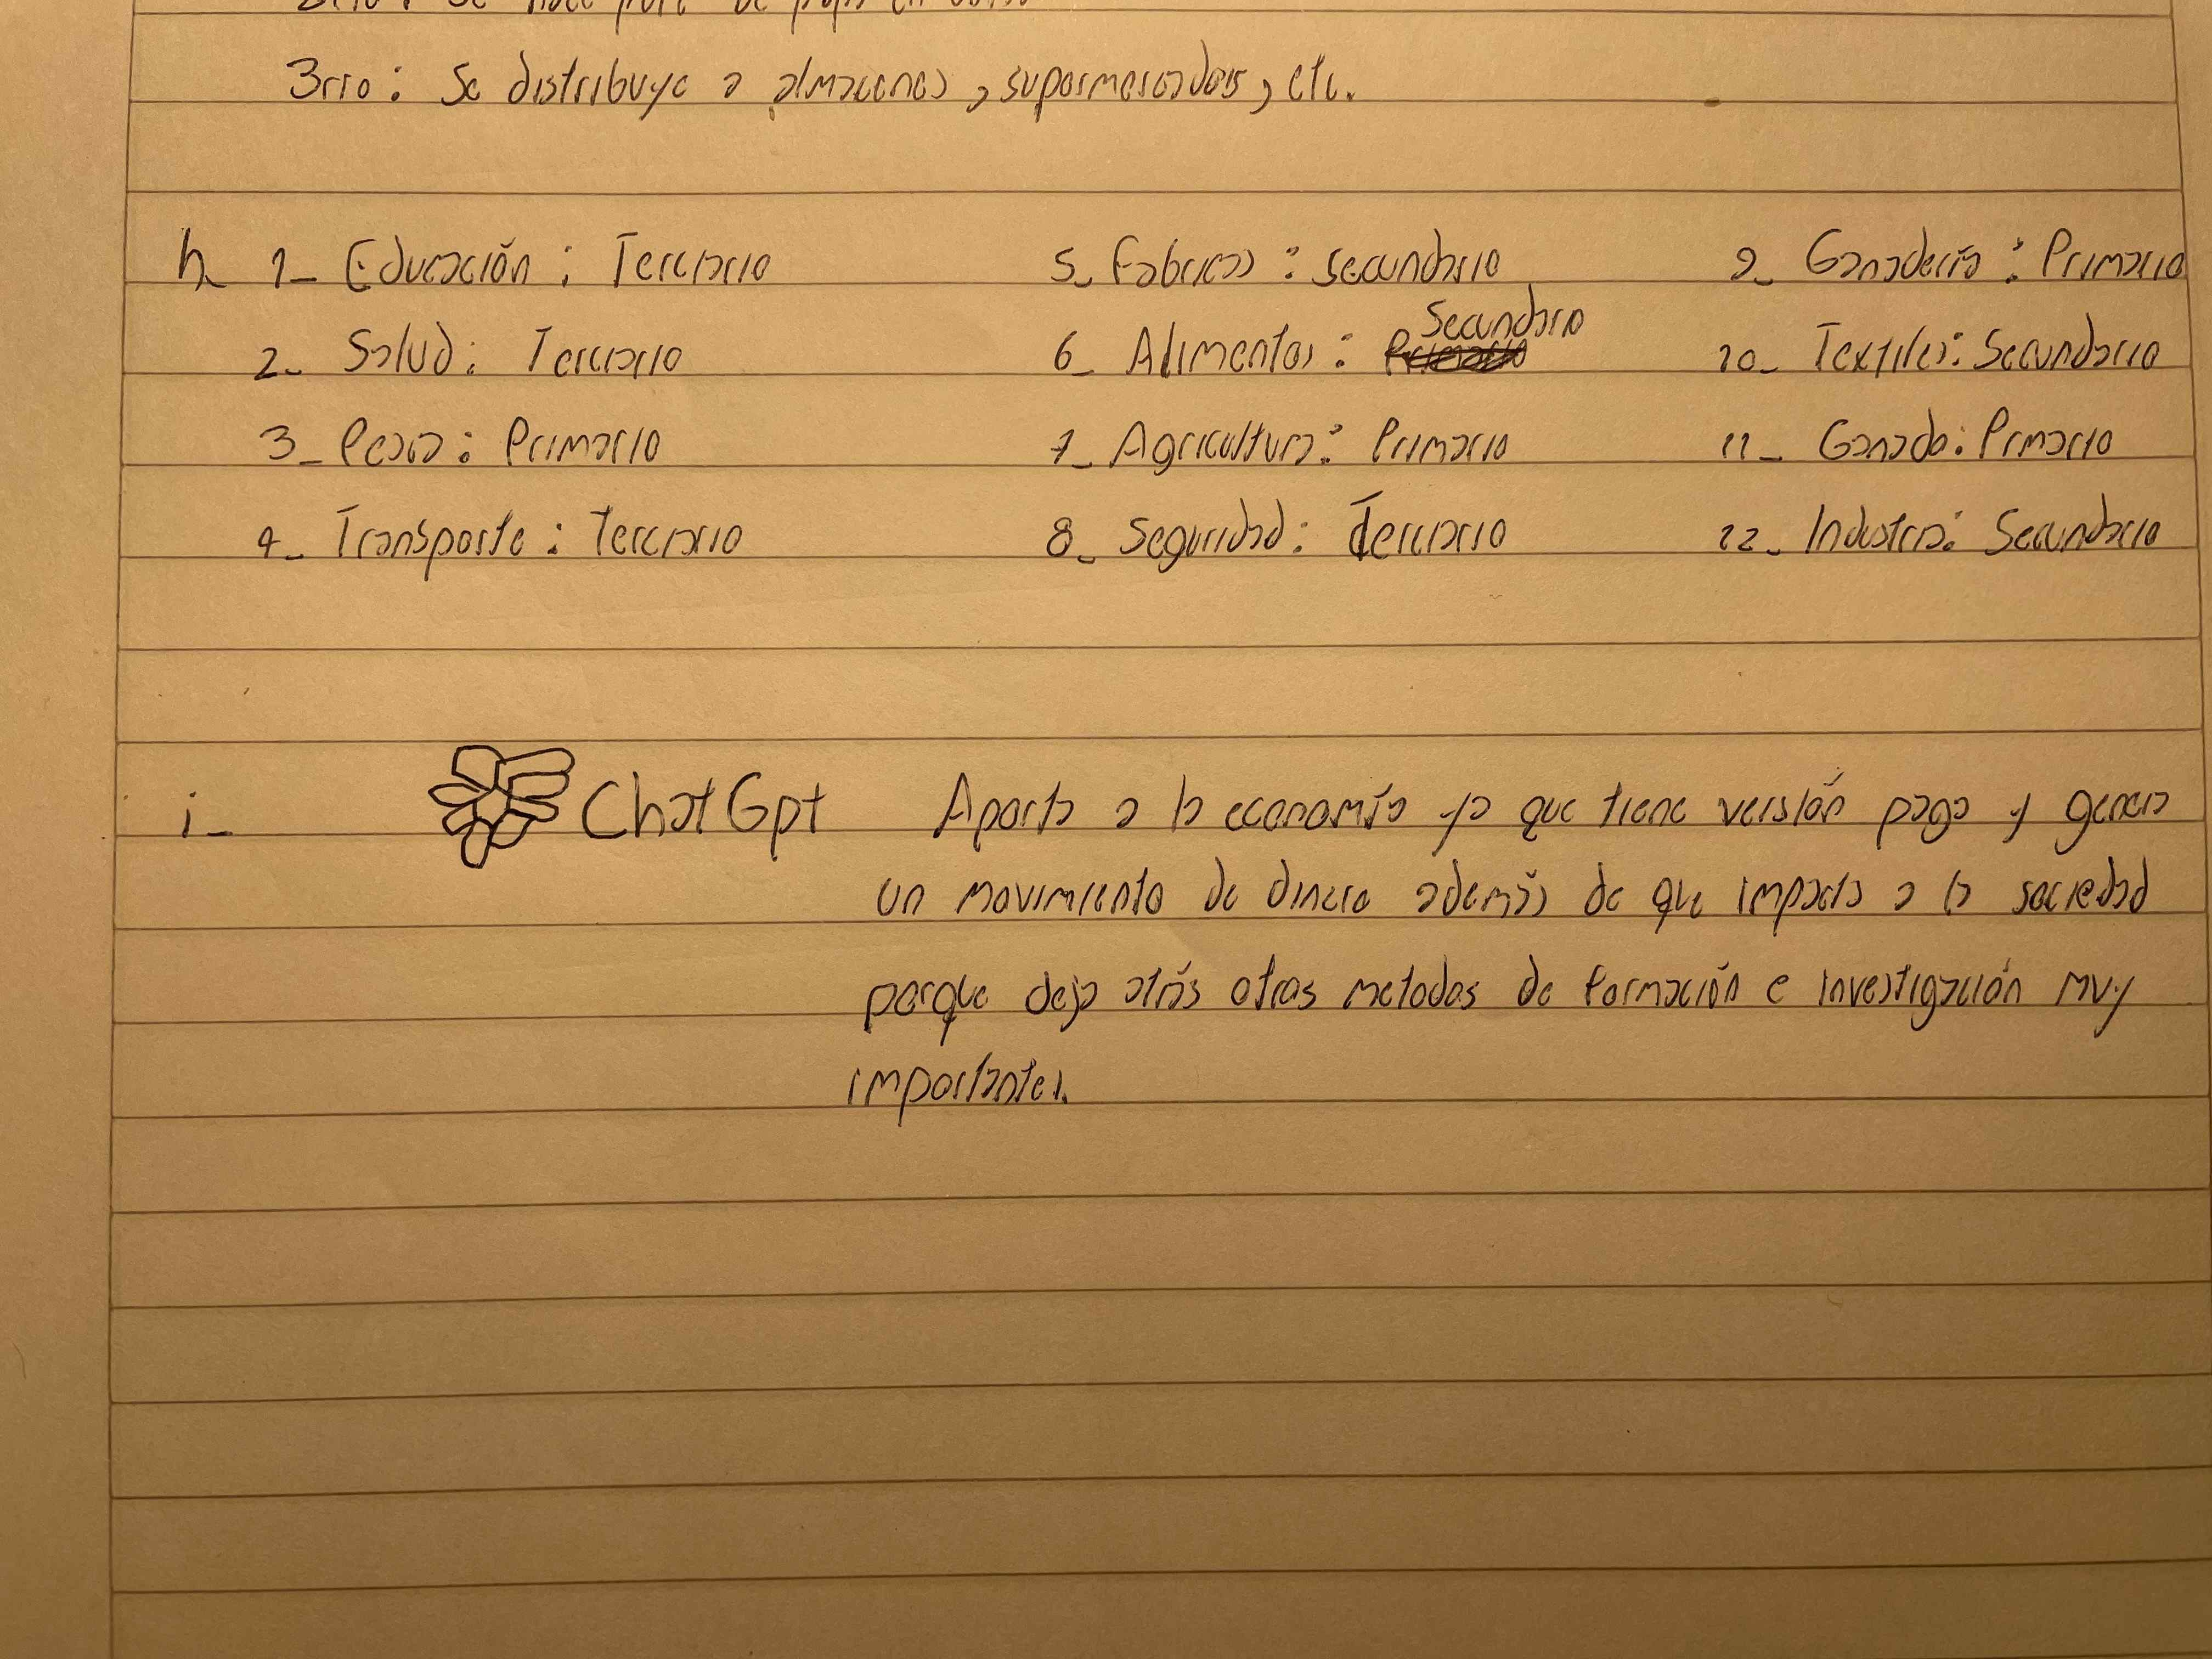 Se hace puré de papa en
3rio: Se distribuye a almacenes, supermercados, etc.
h_ 1_ Educación: Terciario
5_ Fabricas: secundario
9_ Ganadería: Primario
2_ Salud: Terciario
6_ Alimentos: Secundario
10_ Textiles: Secundario
3_ Pesca: Primario
7_ Agricultura: Primario
11_ Ganado: Prmario
4_ Transporte: Terciario
8_ Seguridad: Terciario
12_ Industria: Secundario
i_ ChatGpt Aporta a la economía ya que tiene versión paga y genera
un movimiento de dinero además de que impacta a la sociedad
porque deja atrás otros metodos de formación e investigación muy
importantes.